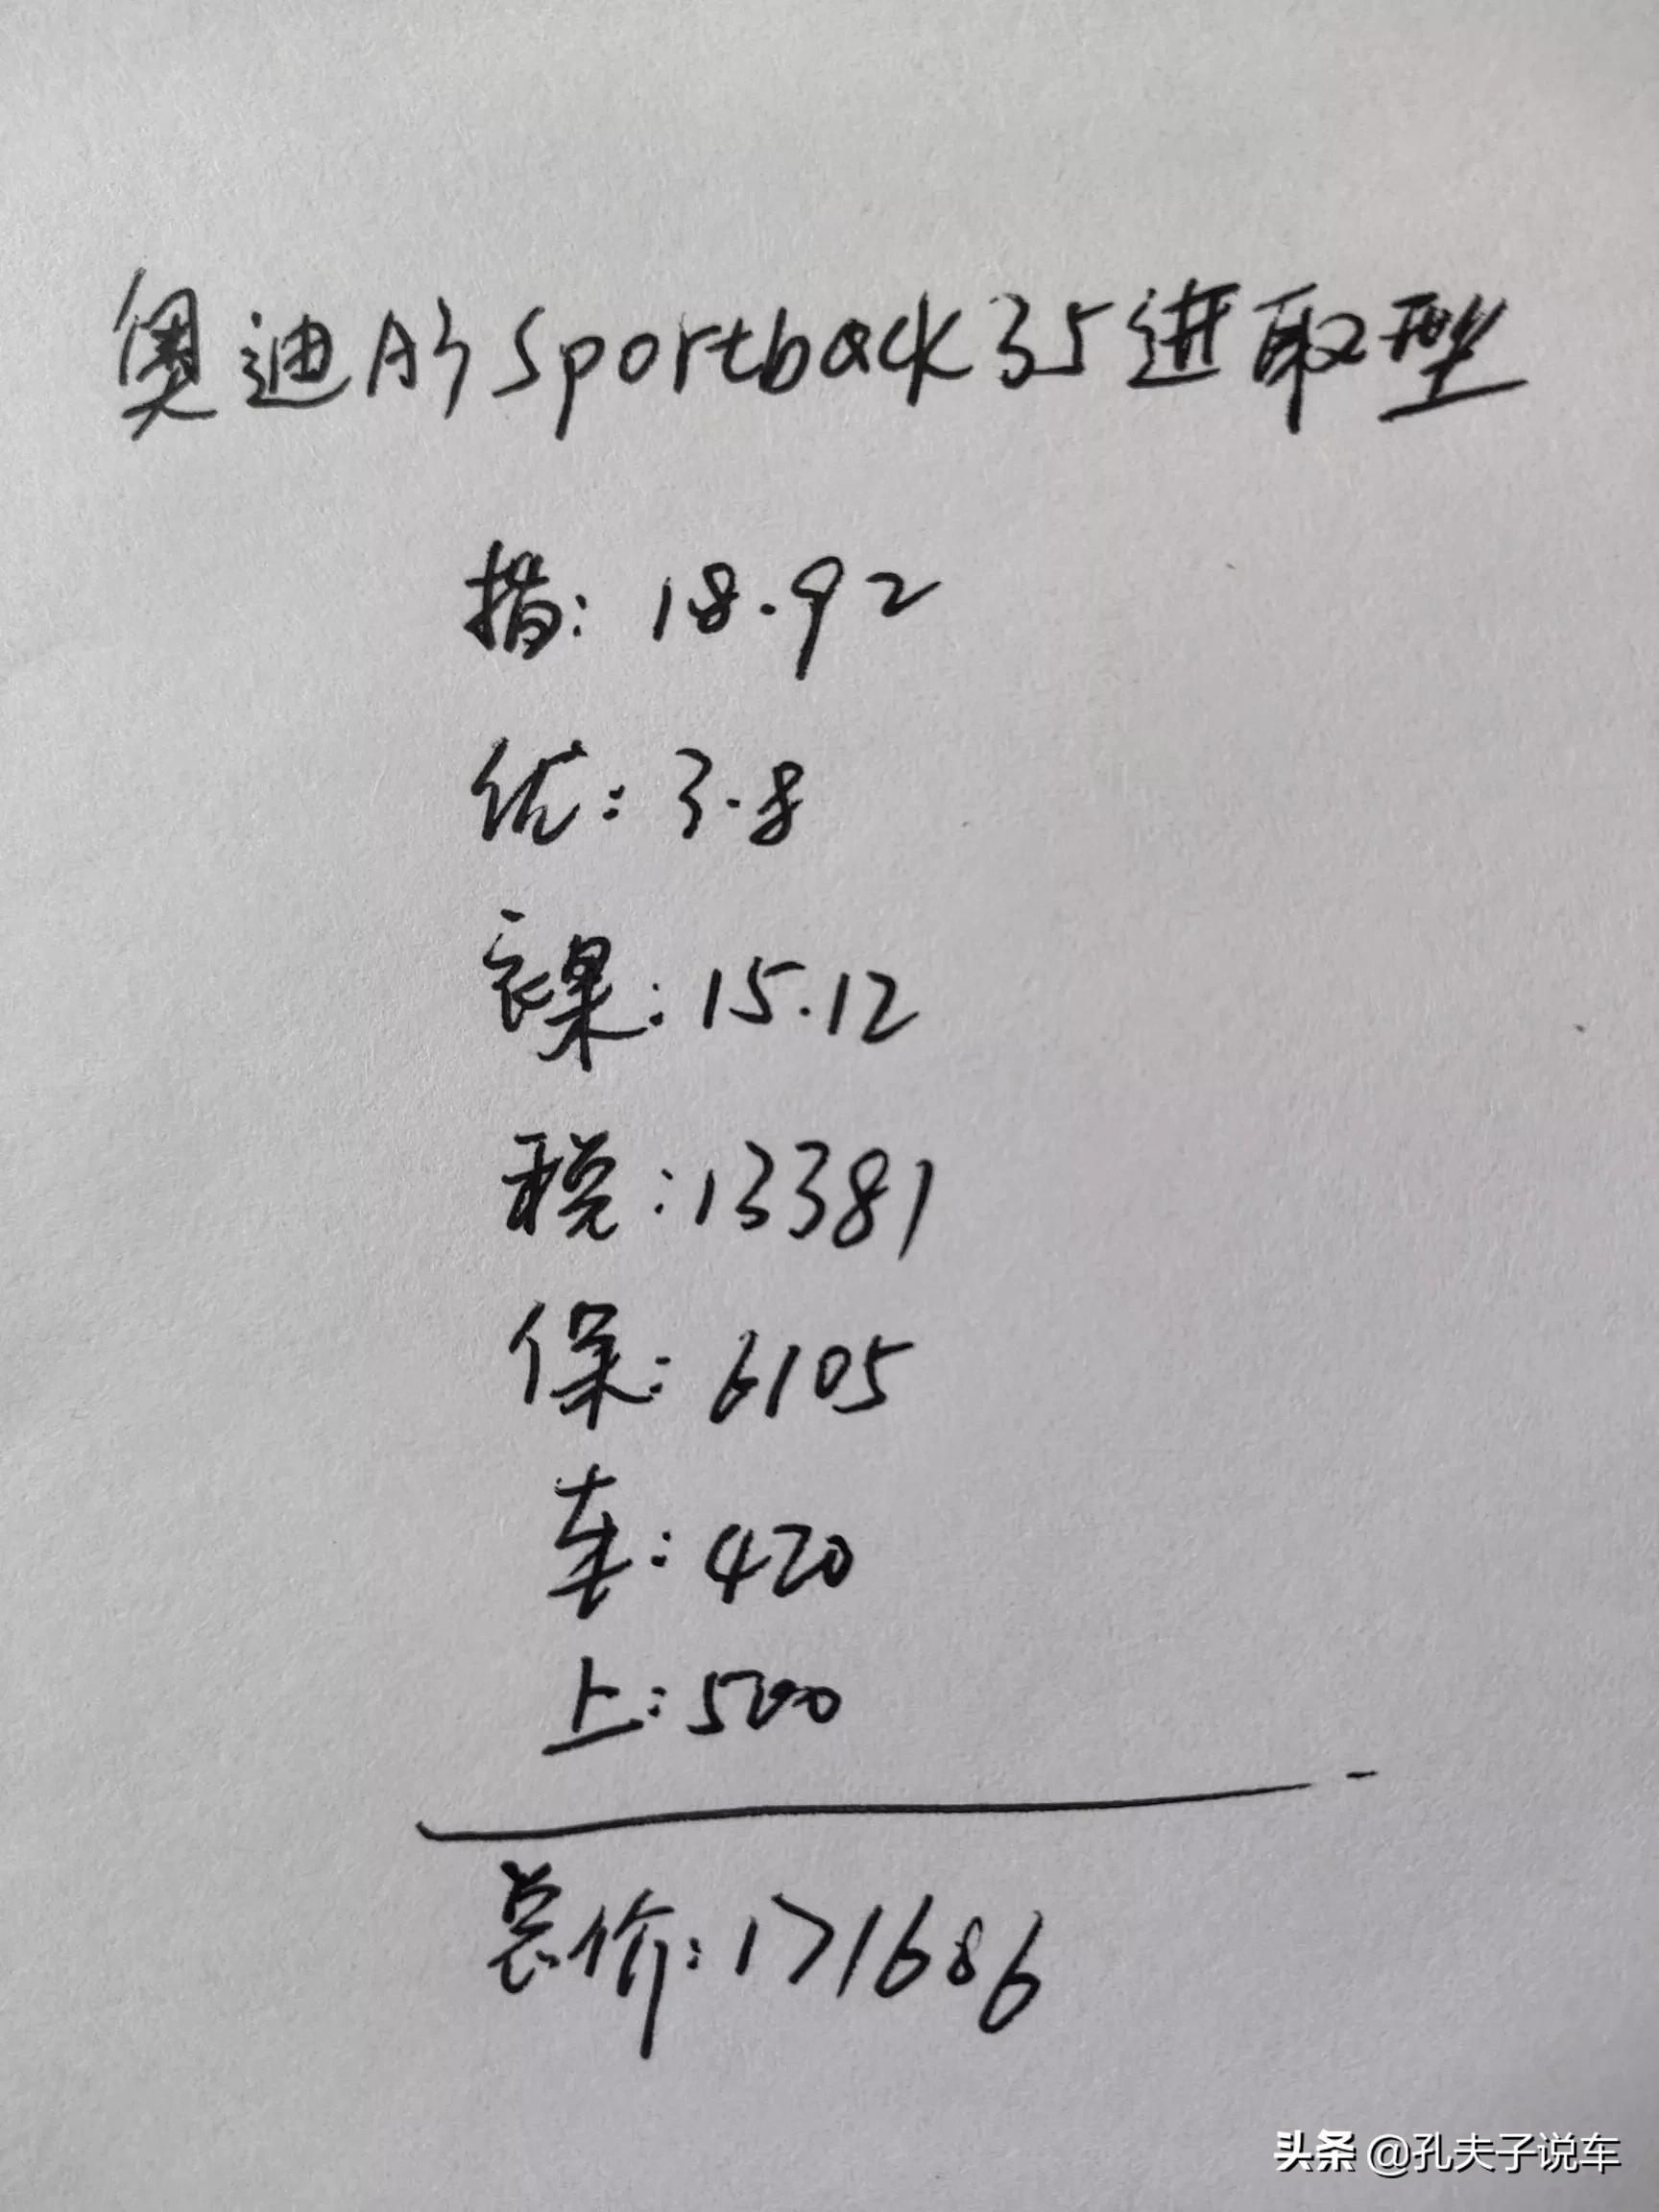 奥迪A3Sportback35进取型
指：18.92
优：3.8
裸：15.12
税：13381
保：6105
车：420
上：500
总价：171686
头条 @孔夫子说车